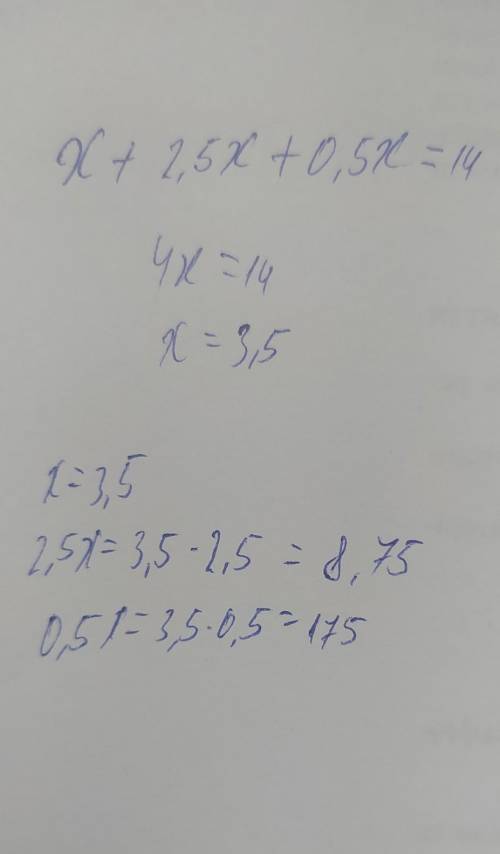 x + 2,5x + 0,5x = 14
4x = 14
x = 3,5
x = 3,5
2,5x = 3,5 · 2,5 = 8,75
0,5x = 3,5 · 0,5 = 175